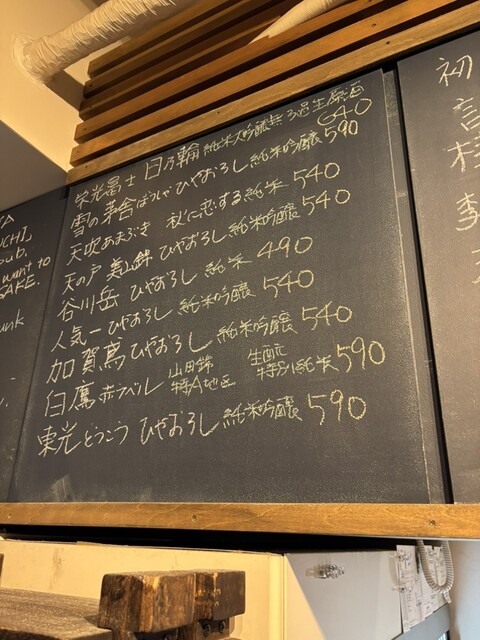 栄光冨士 日乃輪 純米大吟醸無ろ過生原酒 640
雪の茅舎 ひやおろし 純米吟醸 590
天吹あまぶき 秋に恋する純米 540
天の戸 美山錦 ひやおろし 純米吟醸 540
谷川岳 ひやおろし 純米 490
人気一 ひやおろし 純米吟醸 540
加賀鳶 ひやおろし 純米吟醸 540
白鷹 赤ラベル 山田錦 特A地区 生酛 特別純米 590
東光とうこう ひやおろし 純米吟醸 590
UCHI]
pub.
want to
SAKE.
unk
初
李